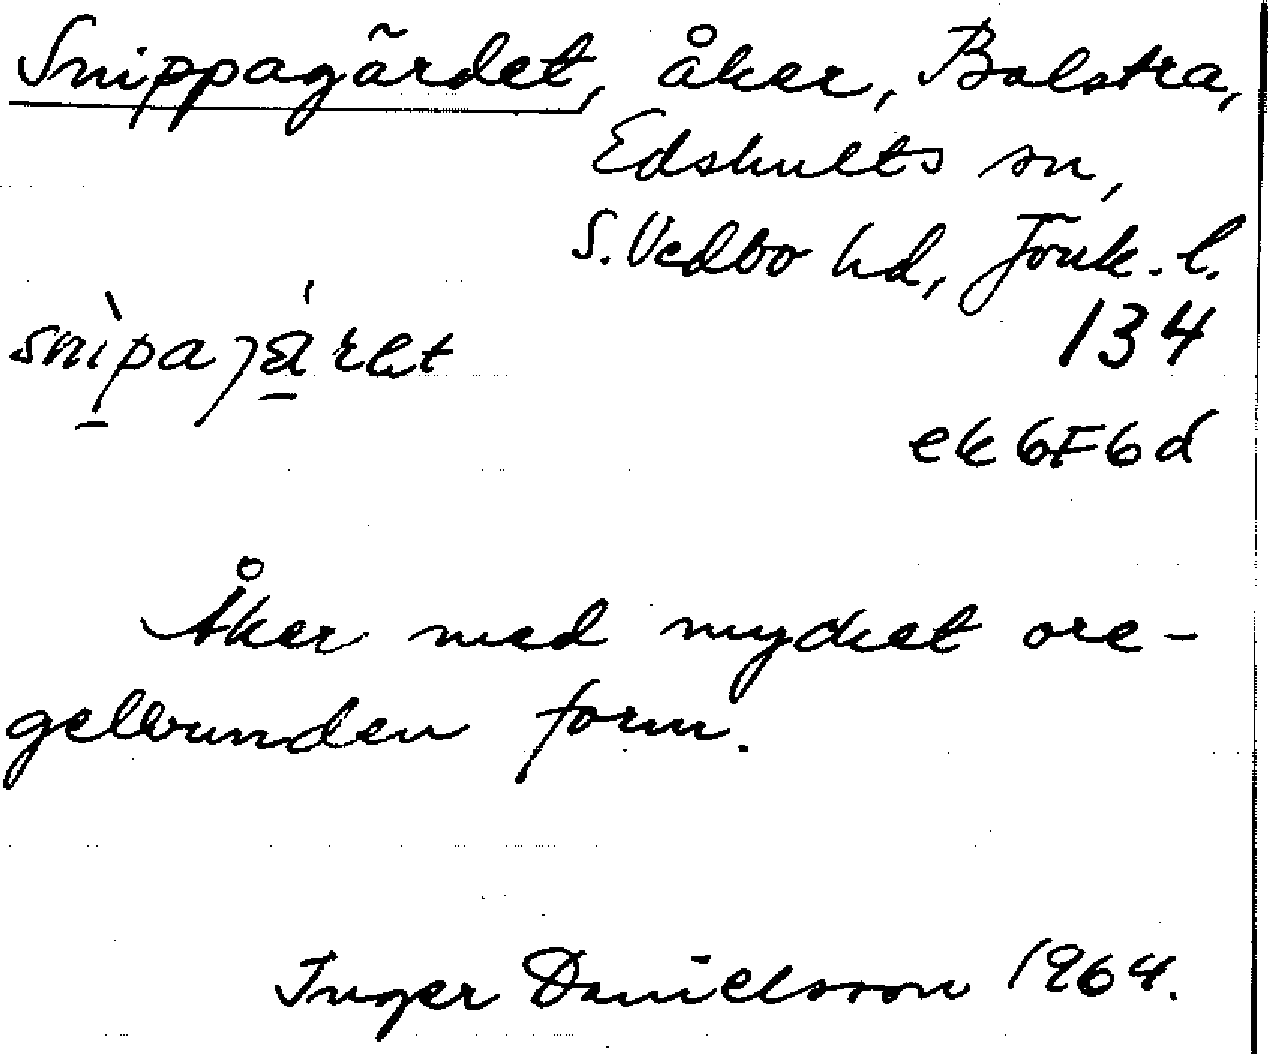 Snippagärdet, åker, Bolstra,
Edshults sn,
S. Vedbo hd, Jönk. l.
snìpajáret
134
ek 6F6d
Åker med mycket ore-
gelbunden form.
Inger Danielsson 1964.